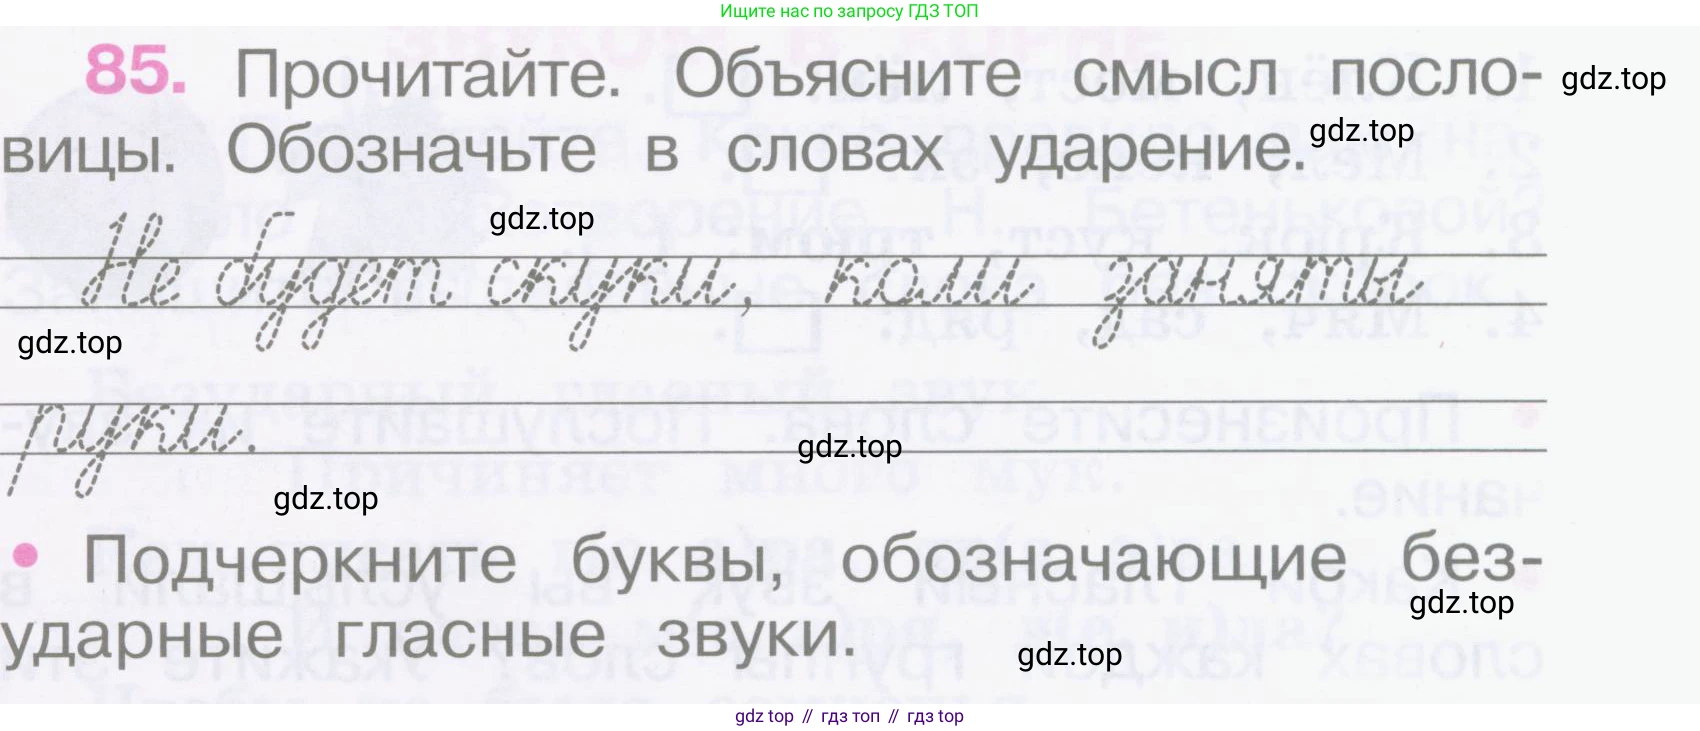 Ищите нас по запросу ГДЗ ТОП
85. Прочитайте. Объясните смысл посло- gdz.top
вицы. Обозначьте в словах ударение. gdz.top
gdz.top
Не будет скуки, коли заняты
gdz.top
руки.
gdz.top
gdz.top
• Подчеркните буквы, обозначающие без-
gdz.top
ударные гласные звуки.
gdz.top
gdz top // гдз топ // гдз top